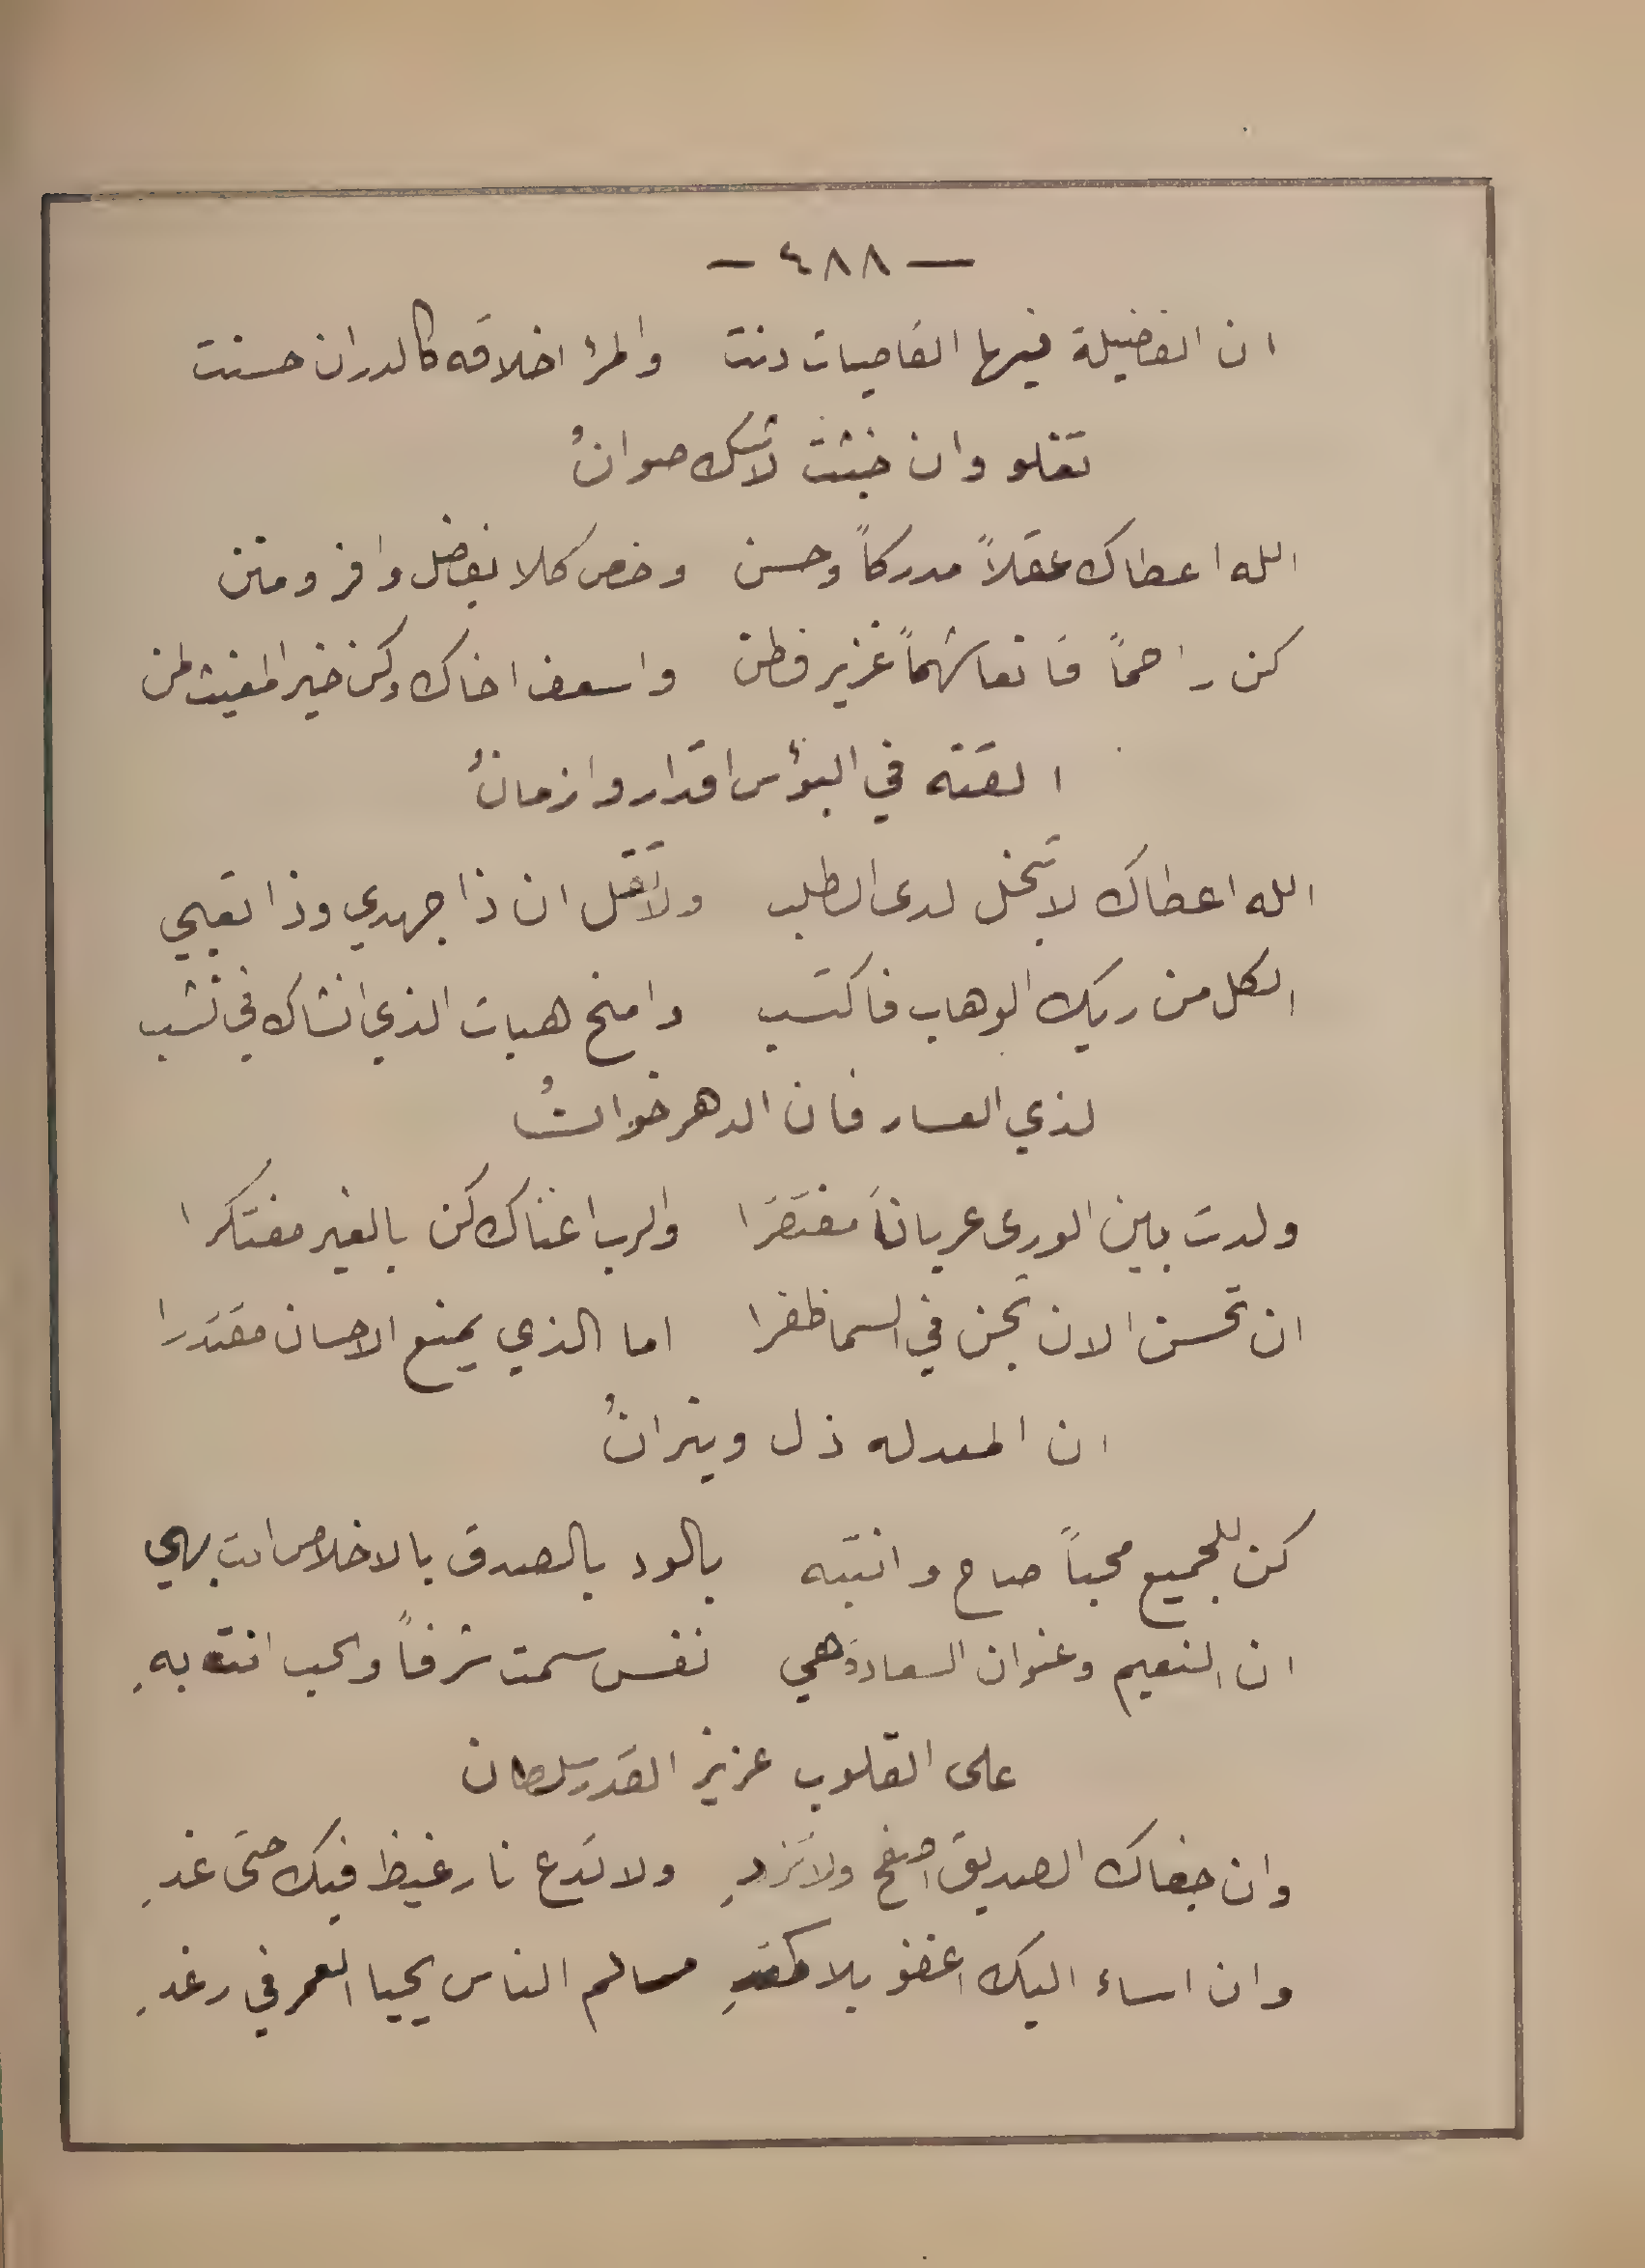 — ٤٨٨ —
ان الفضيلة فيها القاصيات دنت والمرُ اخلاقه كالدر ان حسنت
تغلو وان خبثت لاشك صوانُ
الله اعطاك عقلاً مدركاً وحسن وخص كلا بفضل وافر ومنن
كن راحماً قانعا شهماً غزير فطن واسعف اخاك وكن خير المغيث لمن
القته في البؤس اقدار وازمانُ
الله اعطاك لا تبخل لدى الطلب ولا تقل ان ذا جهدي وذا تعبي
الكل من ربك الوهاب فاكتسب وامنح هبات الذي انشاك في نشب
لذي العسار فان الدهر خوانُ
ولدت بين الورى عرياناً مفتقرا والرب اغناك كن بالغير مفتكرا
ان تحسن الان تجن في السما ظفرا اما الذي يمنع الاحسان مقتدرا
ان المعد له ذل ونيرانُ
كن للجميع محباً صاح وانتبه بالود بالصدق بالاخلاص انت بهي
ان النعيم وعنوان السعادة هي نفس سمت شرفاً والحب انت بهِ
على القلوب عزيز القدر سلطان
وان جفاك الصديق اصفح ولا تزدِ ولا تدع نار غيظ فيك حتى غدِ
وان اساء اليك اغفو بلا مسالم الناس يحيا العمر في رغدِ